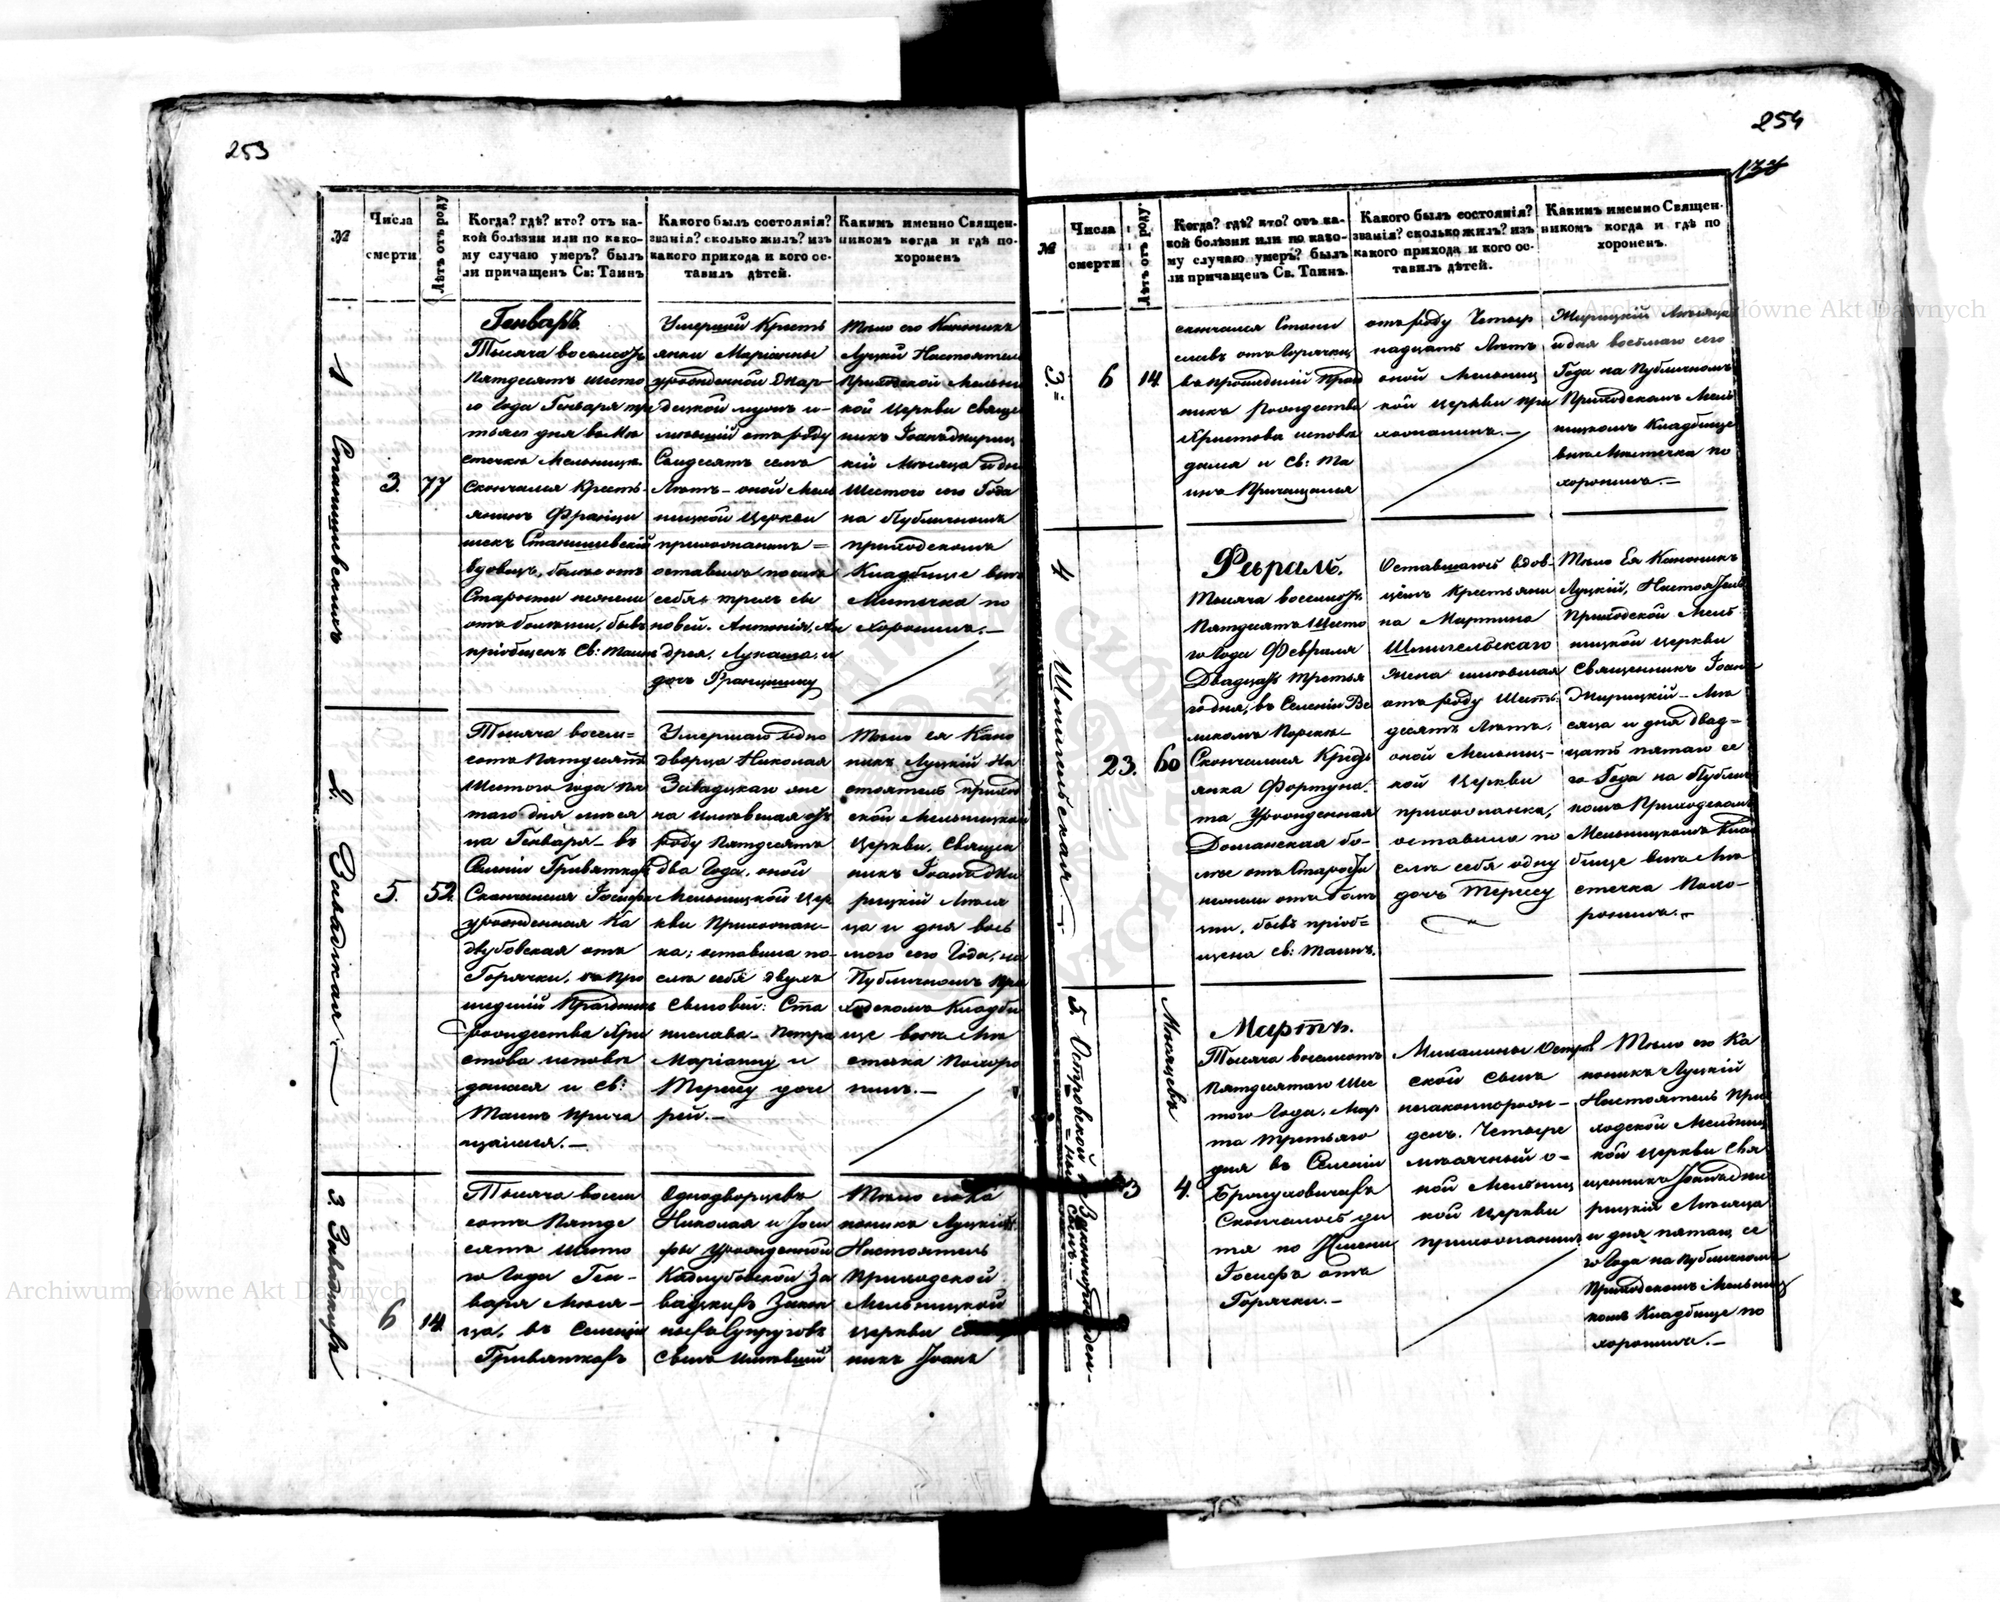 253
№
Числа
смерти
Лѣтъ отъ роду
Когда? гдѣ? кто? отъ ка-
кой болѣзни или по како-
му случаю умеръ? былъ
ли причащенъ Св: Таинъ
Какого былъ состоянія?
званія? сколько жилъ? изъ
какого прихода и кого ос-
тавилъ дѣтей.
Какимъ именно Священ-
никомъ когда и гдѣ по-
хороненъ
1
Станишевскій
3.
77
Генварь.
Тысяча восемьсотъ
Пятдесятъ шесто
го Года Генваря тре
тьяго дня въ Мѣ
стечкѣ Мельницѣ
Скончался Кресть-
янинъ Франци
шекъ Станишевскій
вдовецъ, болѣе отъ
Старости нежели
отъ болѣзни, бывъ
пріобщенъ Св: Таинъ
Умершій Кресть
янки Маріанны
урожденной
децкой мужъ и-
мѣвшій отъ роду
Семдесятъ семь
Лѣтъ - оной Мель
ницкой Церкви
прихожанинъ =
оставилъ послѣ
себя трехъ сы
новей. Антонія, Ан
дрея, Лукаша, и
дочь Францишку
Тѣло его Каноникъ
Луцкій Настоятель
Приходской Мельни
кой Церкви Свяще
никъ Іоаннъ Жириц
кій Мѣсяца и дня
Шестого сего Года
на Публичномъ
приходскомъ
Кладбище внѣ
Мѣстечка по
хоронилъ. —
2.
Завадзкая
5.
52.
Тысяча восем=
сотъ Пятдесятъ
Шестого Года Пя
таго дня мѣся
ца Генваря - въ
Селеніи Гривяткахъ
Скончалася Іосифа
урожденная Ка
длубовская отъ
Горячки, въ про
шедшій Праздникъ
Рождества Хри
стова исповѣ
далася и Св:
Таинъ прича
щалася. —
Умершаго одно
дворца Николая
Завадцкаго же
на имѣвшая отъ
роду Пятдесятъ
два Года, оной
Мельницкой Цер
кви Прихожан-
ка; оставила по-
слѣ себя двухъ
Сыновей: Ста
нислава - Петра
Маріанну и
Терезу доче
рей. —
Тѣло ея Кано
никъ Луцкій На
стоятель прихо
ской Мельницкой
Церкви, Священ
никъ Іоаннъ Жи
рицкій Мѣся
ца и дня вось
мого сего Года, на
Публичномъ При
ходскомъ Кладби
ще внѣ Мѣ
стечка Похоро
нилъ. —
3.
Завадзкихъ
6
14.
Тысяча восем
сотъ Пятде
сятъ шесто
го Года Ген-
варя Мѣся-
ца, въ Селеніи
Гривяткахъ
Однодворцевъ
Николая и Іоси
фы урожденной
Кадлубовской За
вадзкихъ Закон
ныхъ Супруговъ
Сынъ имѣвшій
Тѣло его Ка
ноникъ Луцкій
Настоятель
Приходской
Мельницкой
Церкви Священ
никъ Іоаннъ
254
№
Числа
смерти
Лѣтъ отъ роду.
Когда? гдѣ? кто? отъ ка-
кой болѣзни или по како-
му случаю умеръ? былъ
ли причащенъ Св. Таинъ.
Какого былъ состоянія?
званія? сколько жилъ? изъ
какого прихода и кого ос-
тавилъ дѣтей.
Какимъ именно Священ-
никомъ когда и гдѣ по
хороненъ.
3.
6
14
скончался Стани
славъ отъ Горячки,
въ прошедшій Празд
никъ Рождества
Христова исповѣ
дался и Св: Та
инъ Причащался
отъ роду Четыр
надцать Лѣтъ
оной Мельниц
кой Церкви при
хожанинъ. —
Жирицкій Мѣсяца
и дня восьмаго сего
Года на Публичномъ
Приходскомъ Мель
ницкомъ Кладбище
внѣ Мѣстечка по
хоронилъ. —
4
Шпигельская.
23.
60
Февраль.
Тысяча восемьсотъ
Пятдесятъ Шесто
го Года Февраля
Двадцать третья
го дня, въ Селеніи Ве
ликомъ Порскѣ -
Скончалася Кресть
янка Фортуна
та Урожденная
Доманская бо-
лѣе отъ Старости
нежели отъ болѣ
зни, бывъ пріоб=
щена Св: Таинъ.
Оставшаяся вдов-
цемъ Крестьяни
на Мартина
Шпигельскаго
Жена имѣвшая
отъ роду Шесть
десятъ Лѣтъ,
оной Мельниц-
кой Церкви
прихожанка,
оставила по
слѣ себя одну
дочь Терезу
Тѣло Ея Каноникъ
Луцкій, Настоятель
Приходской Мель
ницкой Церкви
Священникъ Іоаннъ
Жирицкій - Мѣ
сяца и дня двад-
цать пятаго се
го Года на Публич
номъ Приходскомъ
Мельницкомъ Клад
бище внѣ Мѣ
стечка Похо-
ронилъ. —
5.
Островской незаконнорожден-
ный сынъ.
3
Мѣсяцевъ
4.
Мартъ.
Тысяча восемсотъ
Пятдесятаго Шес
того Года, Мар
та третьяго
дня въ Селеніи
Скончалось ди
тя по Имени
Іосифъ отъ
Горячки. —
Михалины Остров
ской сынъ
незаконнорож-
денъ. Четыре
мѣсячный о-
ной Мельниц
кой Церкви
прихожанинъ
Тѣло его Ка
ноникъ Луцкій
Настоятель При
ходской Мельниц
кой Церкви Свя
щенникъ Іоаннъ Жи
рицкій Мѣсяца
и дня пятаго се
го Года на Публичномъ
Приходскомъ Мельниц
комъ Кладбище по
хоронилъ. —
Archiwum Główne Akt Dawnych
Archiwum Główne Akt Dawnych